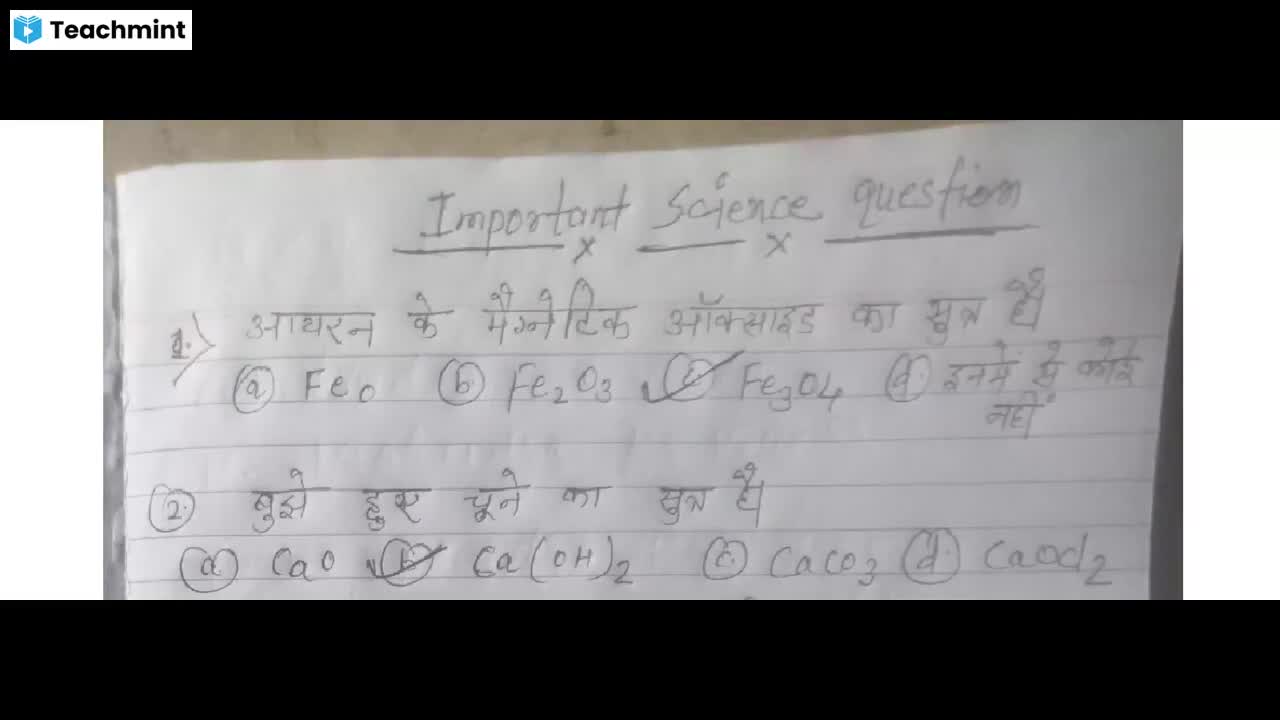 Teachmint
Important Science question
x x
1. आयरन के मैग्नेटिक ऑक्साइड का सुत्र है
(a) FeO (b.) Fe2O3 (c) Fe3O4 (d) इनमे से कोई
नहीं
2. बुझे हुए चूने का सुत्र है
(a) CaO (b) Ca(OH)2 (c) CaCO3 (d) CaOCl2